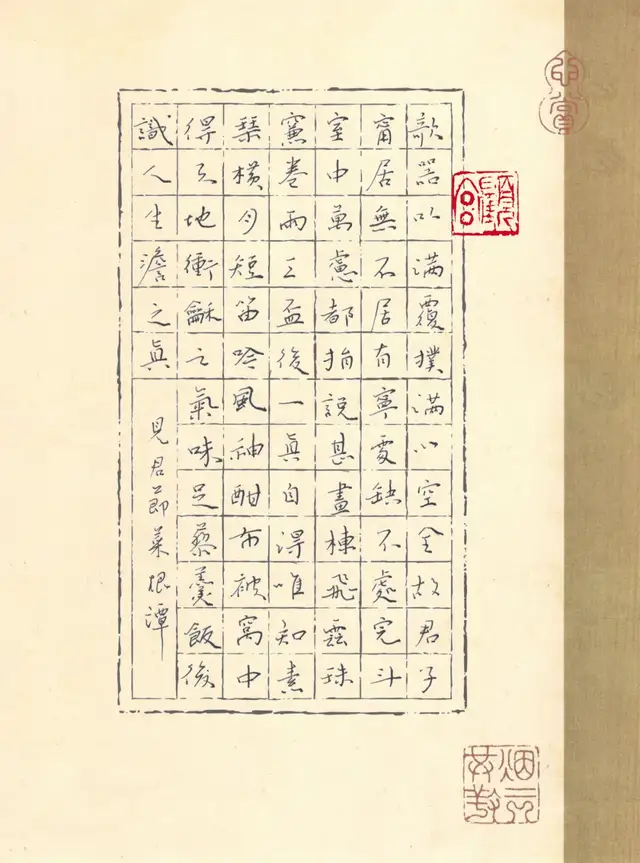 欹器以满覆撲满以空全故君子
甯居無不居有寧處缺不處完斗
室中萬慮都捐說甚畫棟飛雲珠
簾卷雨三盃後一真自得唯知素
琴橫月短笛吟風神酣布被窩中
得天地衝龢之氣味足藜羹飯後
識人生澹之眞
見君節菜根潭
心賞